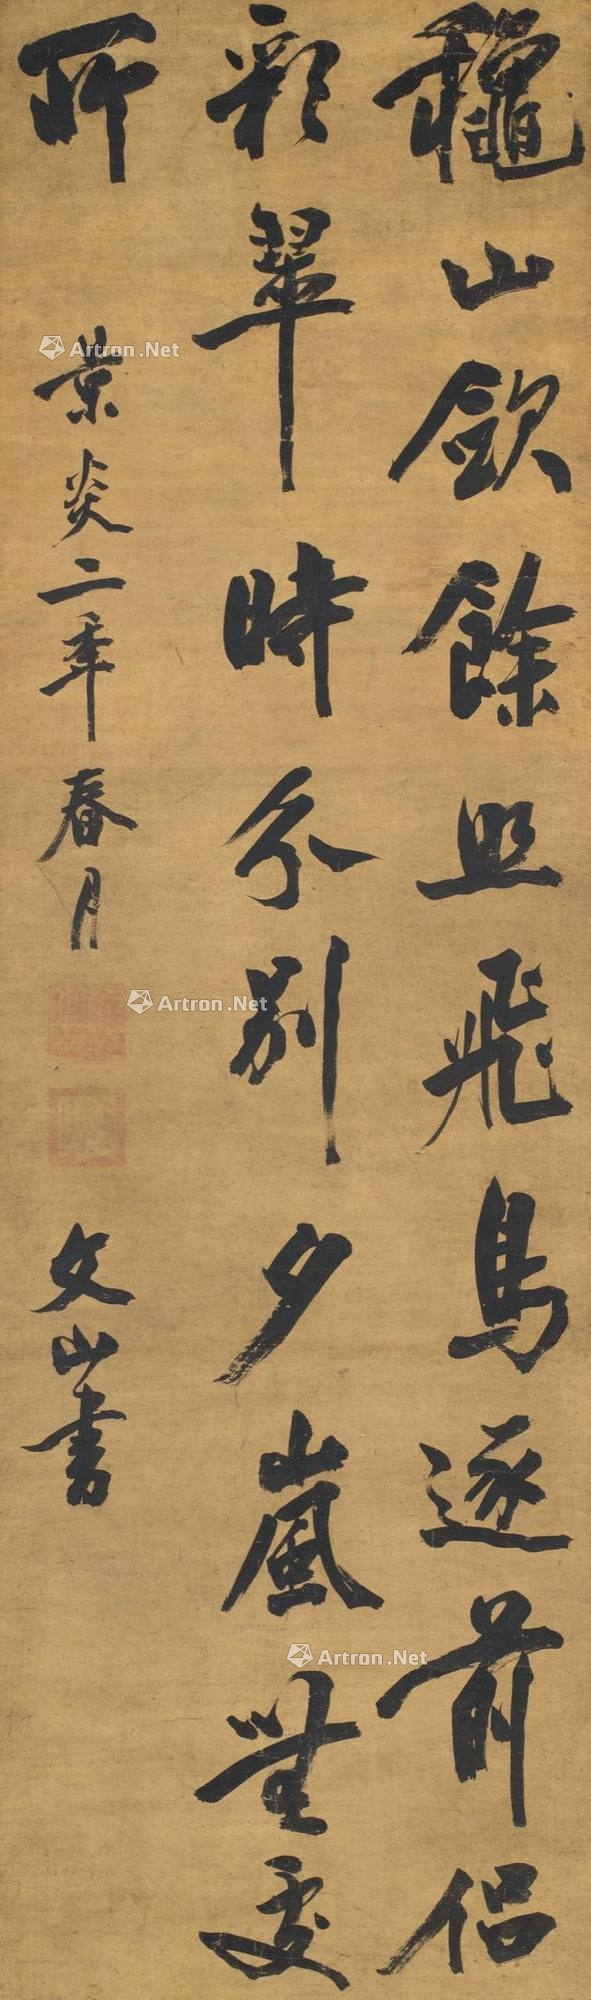 龝山斂餘照飛鳥逐前侶
彩翠時分別夕嵐無處
所
景炎二年春月
文山書
Artron.Net
Artron.Net
Artron.Net